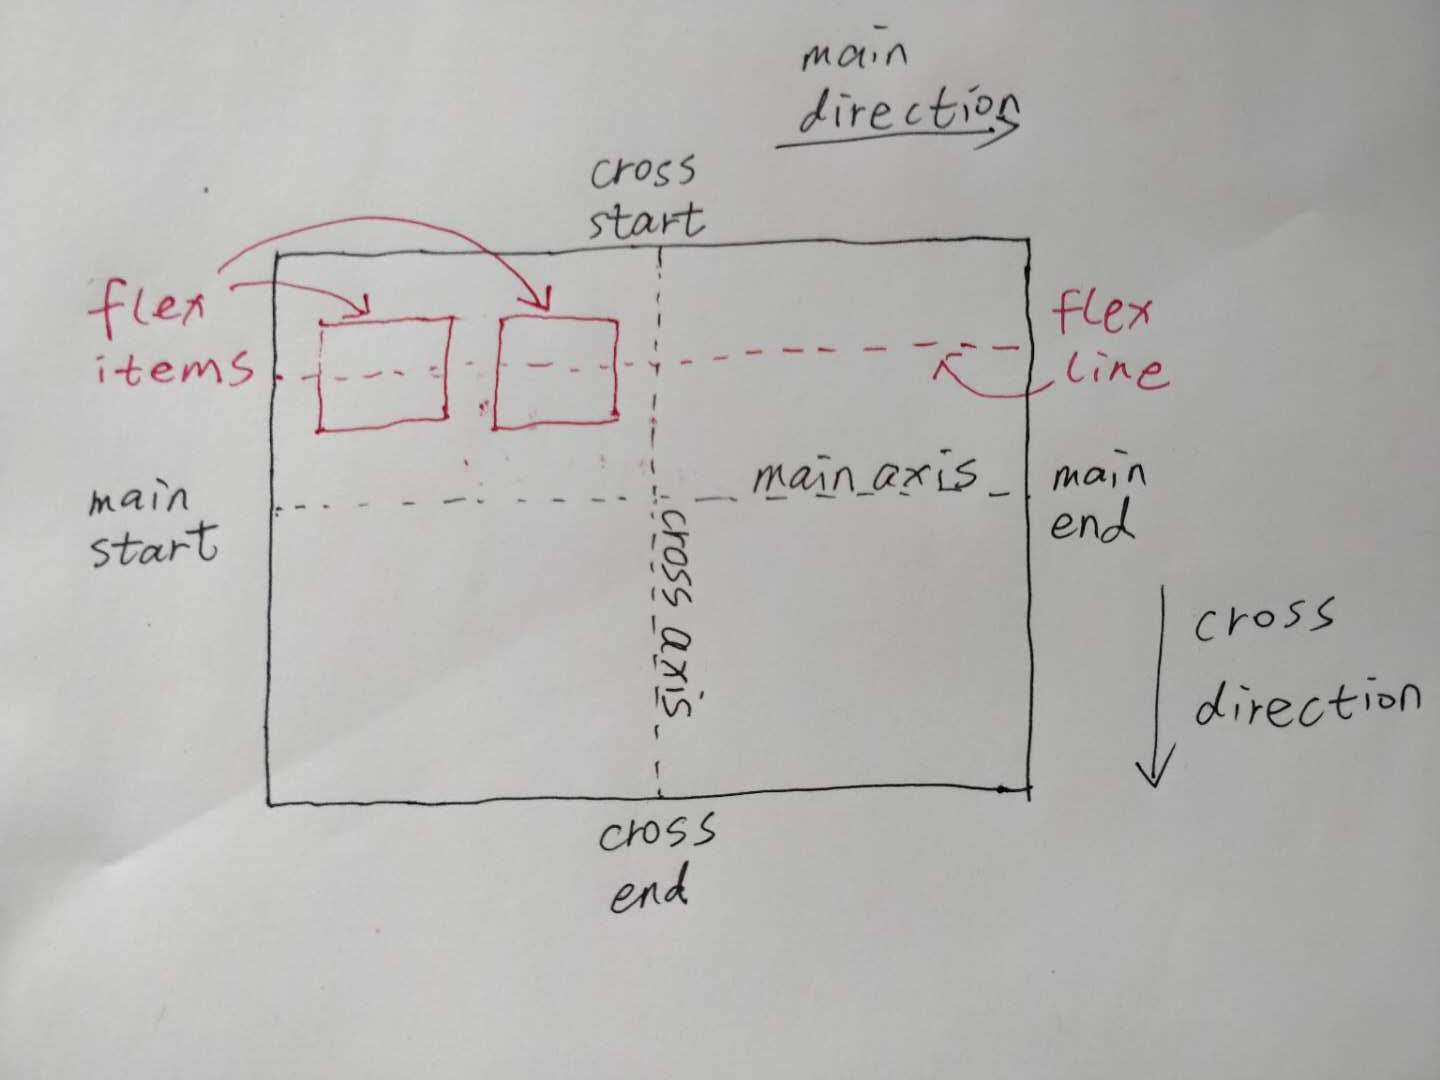 main
direction
cross
start
flex
items
flex
line
main axis
main
start
main
end
cross axis
cross
direction
cross
end